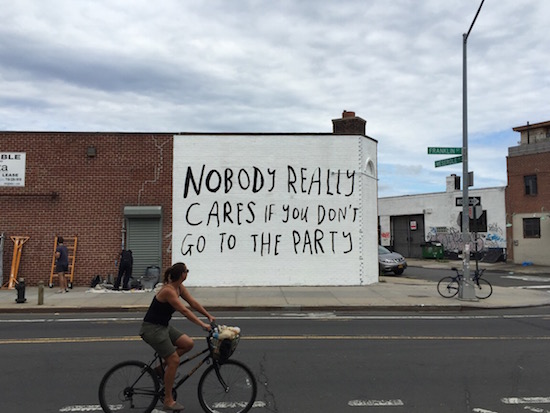 NOBODY REALLY
CARES IF YOU DON'T
GO TO THE PARTY
FRANKLIN
BLE
LEASE